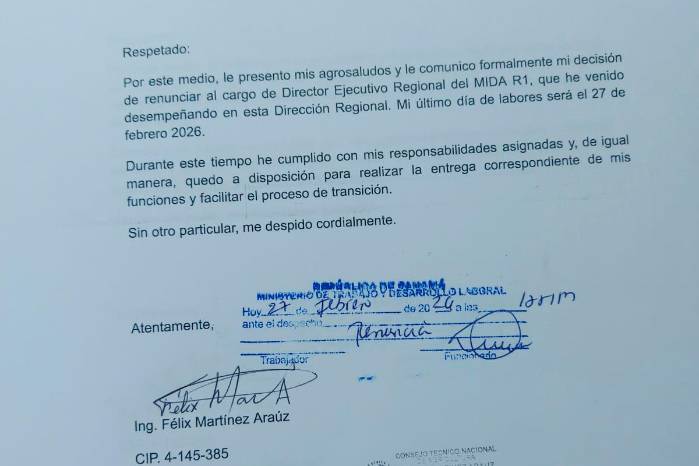 Respetado:
Por este medio, le presento mis agrosaludos y le comunico formalmente mi decisión
de renunciar al cargo de Director Ejecutivo Regional del MIDA R1, que he venido
desempeñando en esta Dirección Regional. Mi último día de labores será el 27 de
febrero 2026.
Durante este tiempo he cumplido con mis responsabilidades asignadas y, de igual
manera, quedo a disposición para realizar la entrega correspondiente de mis
funciones y facilitar el proceso de transición.
Sin otro particular, me despido cordialmente.
REPÚBLICA DE PANAMÁ
MINISTERIO DE TRABAJO Y DESARROLLO LABORAL
Hoy 27 de Febrero de 2026 a las
ante el despacho renuncia
Trabajador Funcionado
Atentamente,
Félix
Ing. Félix Martínez Araúz
CIP. 4-145-385
CONSEJO TECNICO NACIONAL